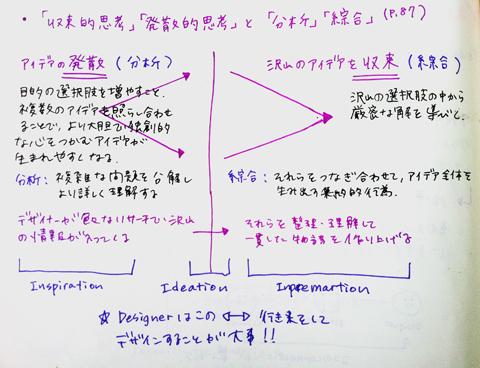 ・「収束的思考」「発散的思考」と「分析」「綜合」(P.87)
アイデアの発散(分析)
目的の選択肢を増やすこと.
複数のアイデアを照らし合わせ
ることで,より大胆で独創的
な心をつかむアイデアが
生まれやすくなる.
分析:複雑な問題を分解し
より詳しく理解する
デザイナーが色々なリサーチで沢山
の情報が入ってくる
沢山のアイデアを収束(綜合)
沢山の選択肢の中から
厳密な解を導いて.
綜合:それらをつなぎ合わせて,アイデア全体を
生み出す行為.
それらを整理・理解して
一貫した物語を作り上げる
Inspiration
Ideation
Inpremartion
☆ Designerはこの ⟷ 行き来をして
デザインすることが大事!!